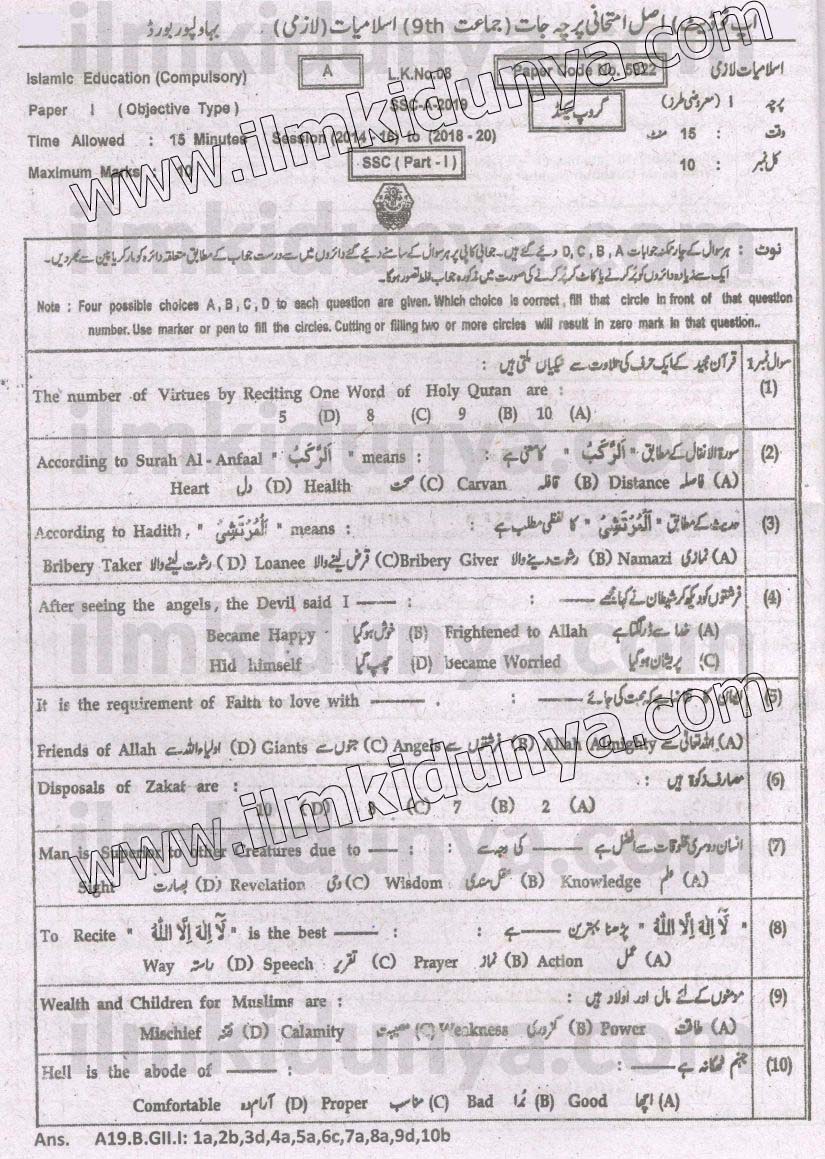 اصل امتحانی پرچہ جات (جماعت 9th) اسلامیات (لازمی) ۔ بہاولپور بورڈ
Islamic Education (Compulsory) A L.K.No.08 Paper Code No. 5922 اسلامیات لازمی
Paper I ( Objective Type ) SSC-A-2019 گروپ سیکنڈ پرچہ I (معروضی طرز)
Time Allowed : 15 Minutes Session (2014 -16) to (2018 - 20) وقت : 15 منٹ
Maximum Marks : 10 SSC ( Part - I ) کل نمبر : 10
نوٹ : ہر سوال کے چار ممکنہ جوابات D , C , B , A دیے گئے ہیں۔ جوابی کاپی پر ہر سوال کے سامنے دیے گئے دائروں میں سے درست جواب کے مطابق متعلقہ دائرہ کو مارکر یا پین سے بھر دیں۔
ایک سے زیادہ دائروں کو پُر کرنے یا کاٹ کر پُر کرنے کی صورت میں مذکورہ جواب غلط تصور ہو گا۔
Note : Four possible choices A , B , C , D to each question are given. Which choice is correct , fill that circle in front of that question
number. Use marker or pen to fill the circles. Cutting or filling two or more circles will result in zero mark in that question..
سوال نمبر 1 قرآن مجید کے ایک حرف کی تلاوت سے نیکیاں ملتی ہیں :
(1) The number of Virtues by Reciting One Word of Holy Quran are :
5 (D) 8 (C) 9 (B) 10 (A)
(2) سورۃ الانفال کے مطابق " اَلرَّکْبُ " کا معنی ہے : : According to Surah Al - Anfaal " اَلرَّکْبُ " means
Heart دل (D) Health صحت (C) Carvan قافلہ (B) Distance فاصلہ (A)
(3) حدیث کے مطابق " اَلْمُرْتَشِیْ " کا لفظی مطلب ہے : : According to Hadith , " اَلْمُرْتَشِیْ " means
Bribery Taker رشوت لینے والا ( D ) Loanee قرض لینے والا (C)Bribery Giver رشوت دینے والا (B) Namazi نمازی (A)
(4) فرشتوں کو دیکھ کر شیطان نے کہا مجھے ——— : : After seeing the angels , the Devil said I ———
Became Happy خوش ہو گیا (B) Frightened to Allah خدا سے ڈر لگتا ہے (A)
Hid himself چھپ گیا (D) became Worried پریشان ہو گیا (C)
(5) کہ محبت کی جائے ——— : . It is the requirement of Faith to love with ———
Friends of Allah اولیاء اللہ سے (D) Giants جنوں سے (C) Angels فرشتوں سے (B) Allah Almighty اللہ تعالیٰ سے (A)
(6) مصارفِ زکوٰۃ ہیں : : Disposals of Zakat are
10 (D) 8 (C) 7 (B) 2 (A)
(7) انسان دوسری مخلوقات سے افضل ہے ——— کی وجہ سے : : Man is Superior to other Creatures due to ———
Sight بصارت (D) Revelation وحی (C) Wisdom عقل مندی (B) Knowledge علم (A)
(8) " لَآ اِلٰہَ اِلَّا اللّٰہُ " پڑھنا بہترین ——— ہے : : To Recite " لَآ اِلٰہَ اِلَّا اللّٰہُ " is the best ———
Way راستہ (D) Speech تقریر (C) Prayer نماز (B) Action عمل (A)
(9) مومنوں کے لئے مال اور اولاد ہیں : : Wealth and Children for Muslims are
Mischief فتنہ (D) Calamity مصیبت (C) Weakness کمزوری (B) Power طاقت (A)
(10) جہنم ٹھکانہ ہے ——— : : Hell is the abode of ———
Comfortable آرام دہ (D) Proper مناسب (C) Bad بُرا (B) Good اچھا (A)
Ans. A19.B.GII.I: 1a,2b,3d,4a,5a,6c,7a,8a,9d,10b
www.ilmkidunya.com
www.ilmkidunya.com